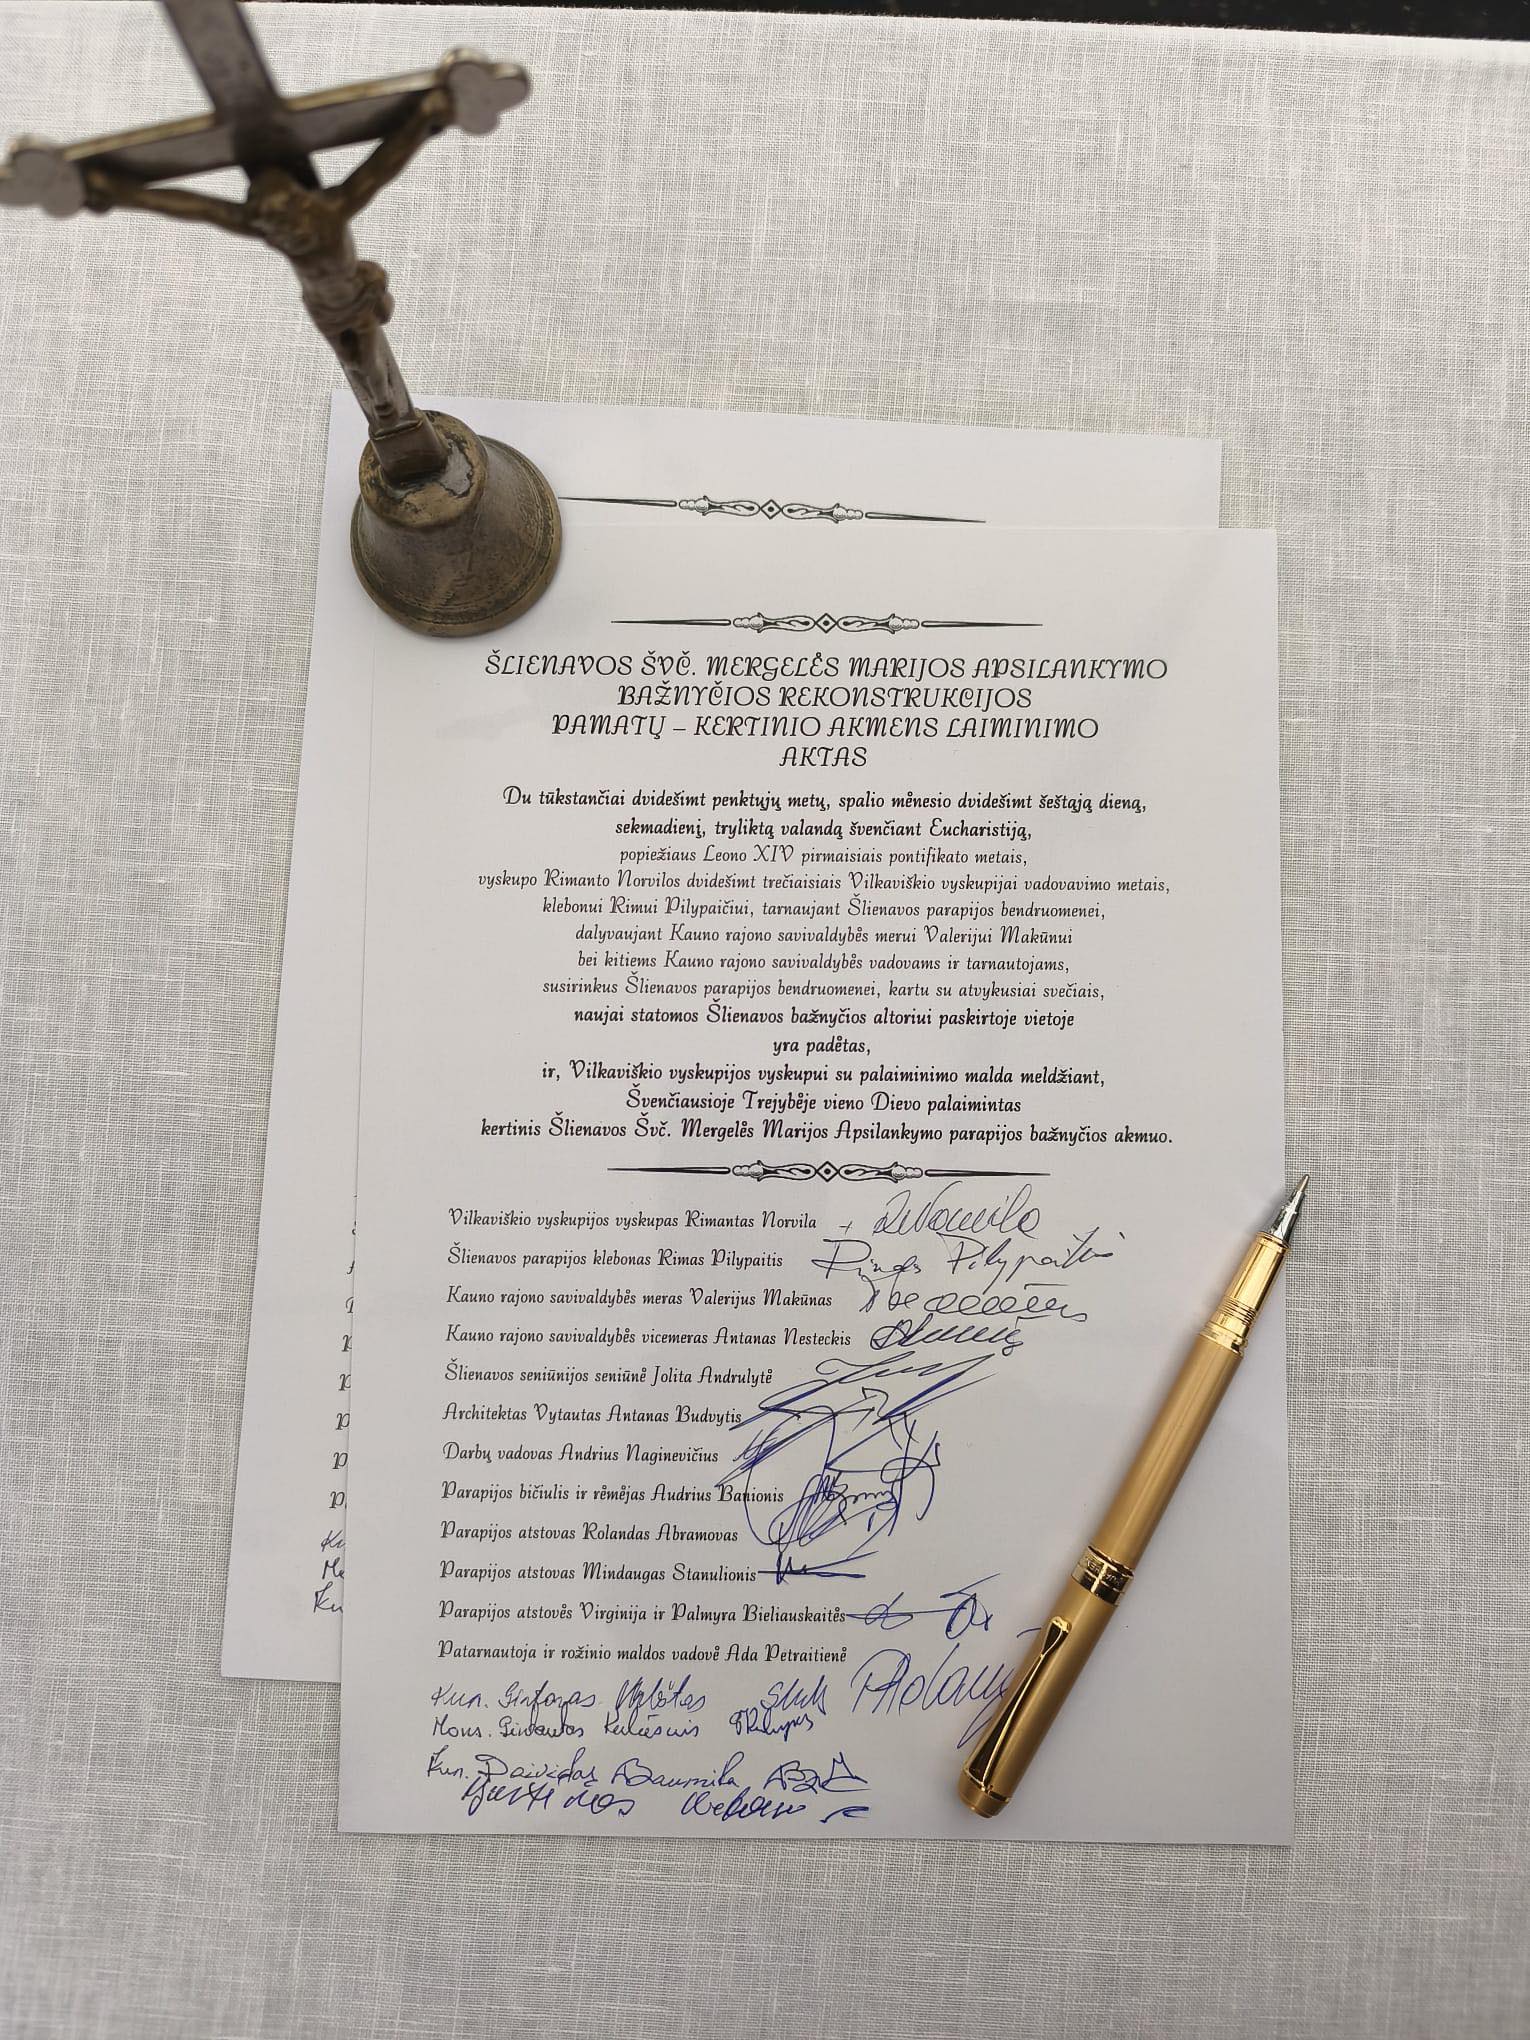 ŠLIENAVOS ŠVČ. MERGELĖS MARIJOS APSILANKYMO
BAŽNYČIOS REKONSTRUKCIJOS
PAMATŲ – KERTINIO AKMENS LAIMINIMO
AKTAS
Du tūkstančiai dvidešimt penktųjų metų, spalio mėnesio dvidešimt šeštąją dieną,
sekmadienį, tryliktą valandą švenčiant Eucharistiją,
popiežiaus Leono XIV pirmaisiais pontifikato metais,
vyskupo Rimanto Norvilos dvidešimt trečiaisiais Vilkaviškio vyskupijai vadovavimo metais,
klebonui Rimui Pilypaičiui, tarnaujant Šlienavos parapijos bendruomenei,
dalyvaujant Kauno rajono savivaldybės merui Valerijui Makūnui
bei kitiems Kauno rajono savivaldybės vadovams ir tarnautojams,
susirinkus Šlienavos parapijos bendruomenei, kartu su atvykusiai svečiais,
naujai statomos Šlienavos bažnyčios altoriui paskirtoje vietoje
yra padėtas,
ir, Vilkaviškio vyskupijos vyskupui su palaiminimo malda meldžiant,
Švenčiausioje Trejybėje vieno Dievo palaimintas
kertinis Šlienavos Švč. Mergelės Marijos Apsilankymo parapijos bažnyčios akmuo.
Vilkaviškio vyskupijos vyskupas Rimantas Norvila
Šlienavos parapijos klebonas Rimas Pilypaitis Rimas Pilypaitis
Kauno rajono savivaldybės meras Valerijus Makūnas
Kauno rajono savivaldybės vicemeras Antanas Nesteckis
Šlienavos seniūnijos seniūnė Jolita Andrulytė
Architektas Vytautas Antanas Budvytis
Darbų vadovas Andrius Naginevičius
Parapijos bičiulis ir rėmėjas Audrius Banionis
Parapijos atstovas Rolandas Abramovas
Parapijos atstovas Mindaugas Stanulionis
Parapijos atstovės Virginija ir Palmyra Bieliauskaitės
Patarnautoja ir rožinio maldos vadovė Ada Petraitienė
Kun. Gintaras
Mons. Gintautas
Kun. Deividas Baumila